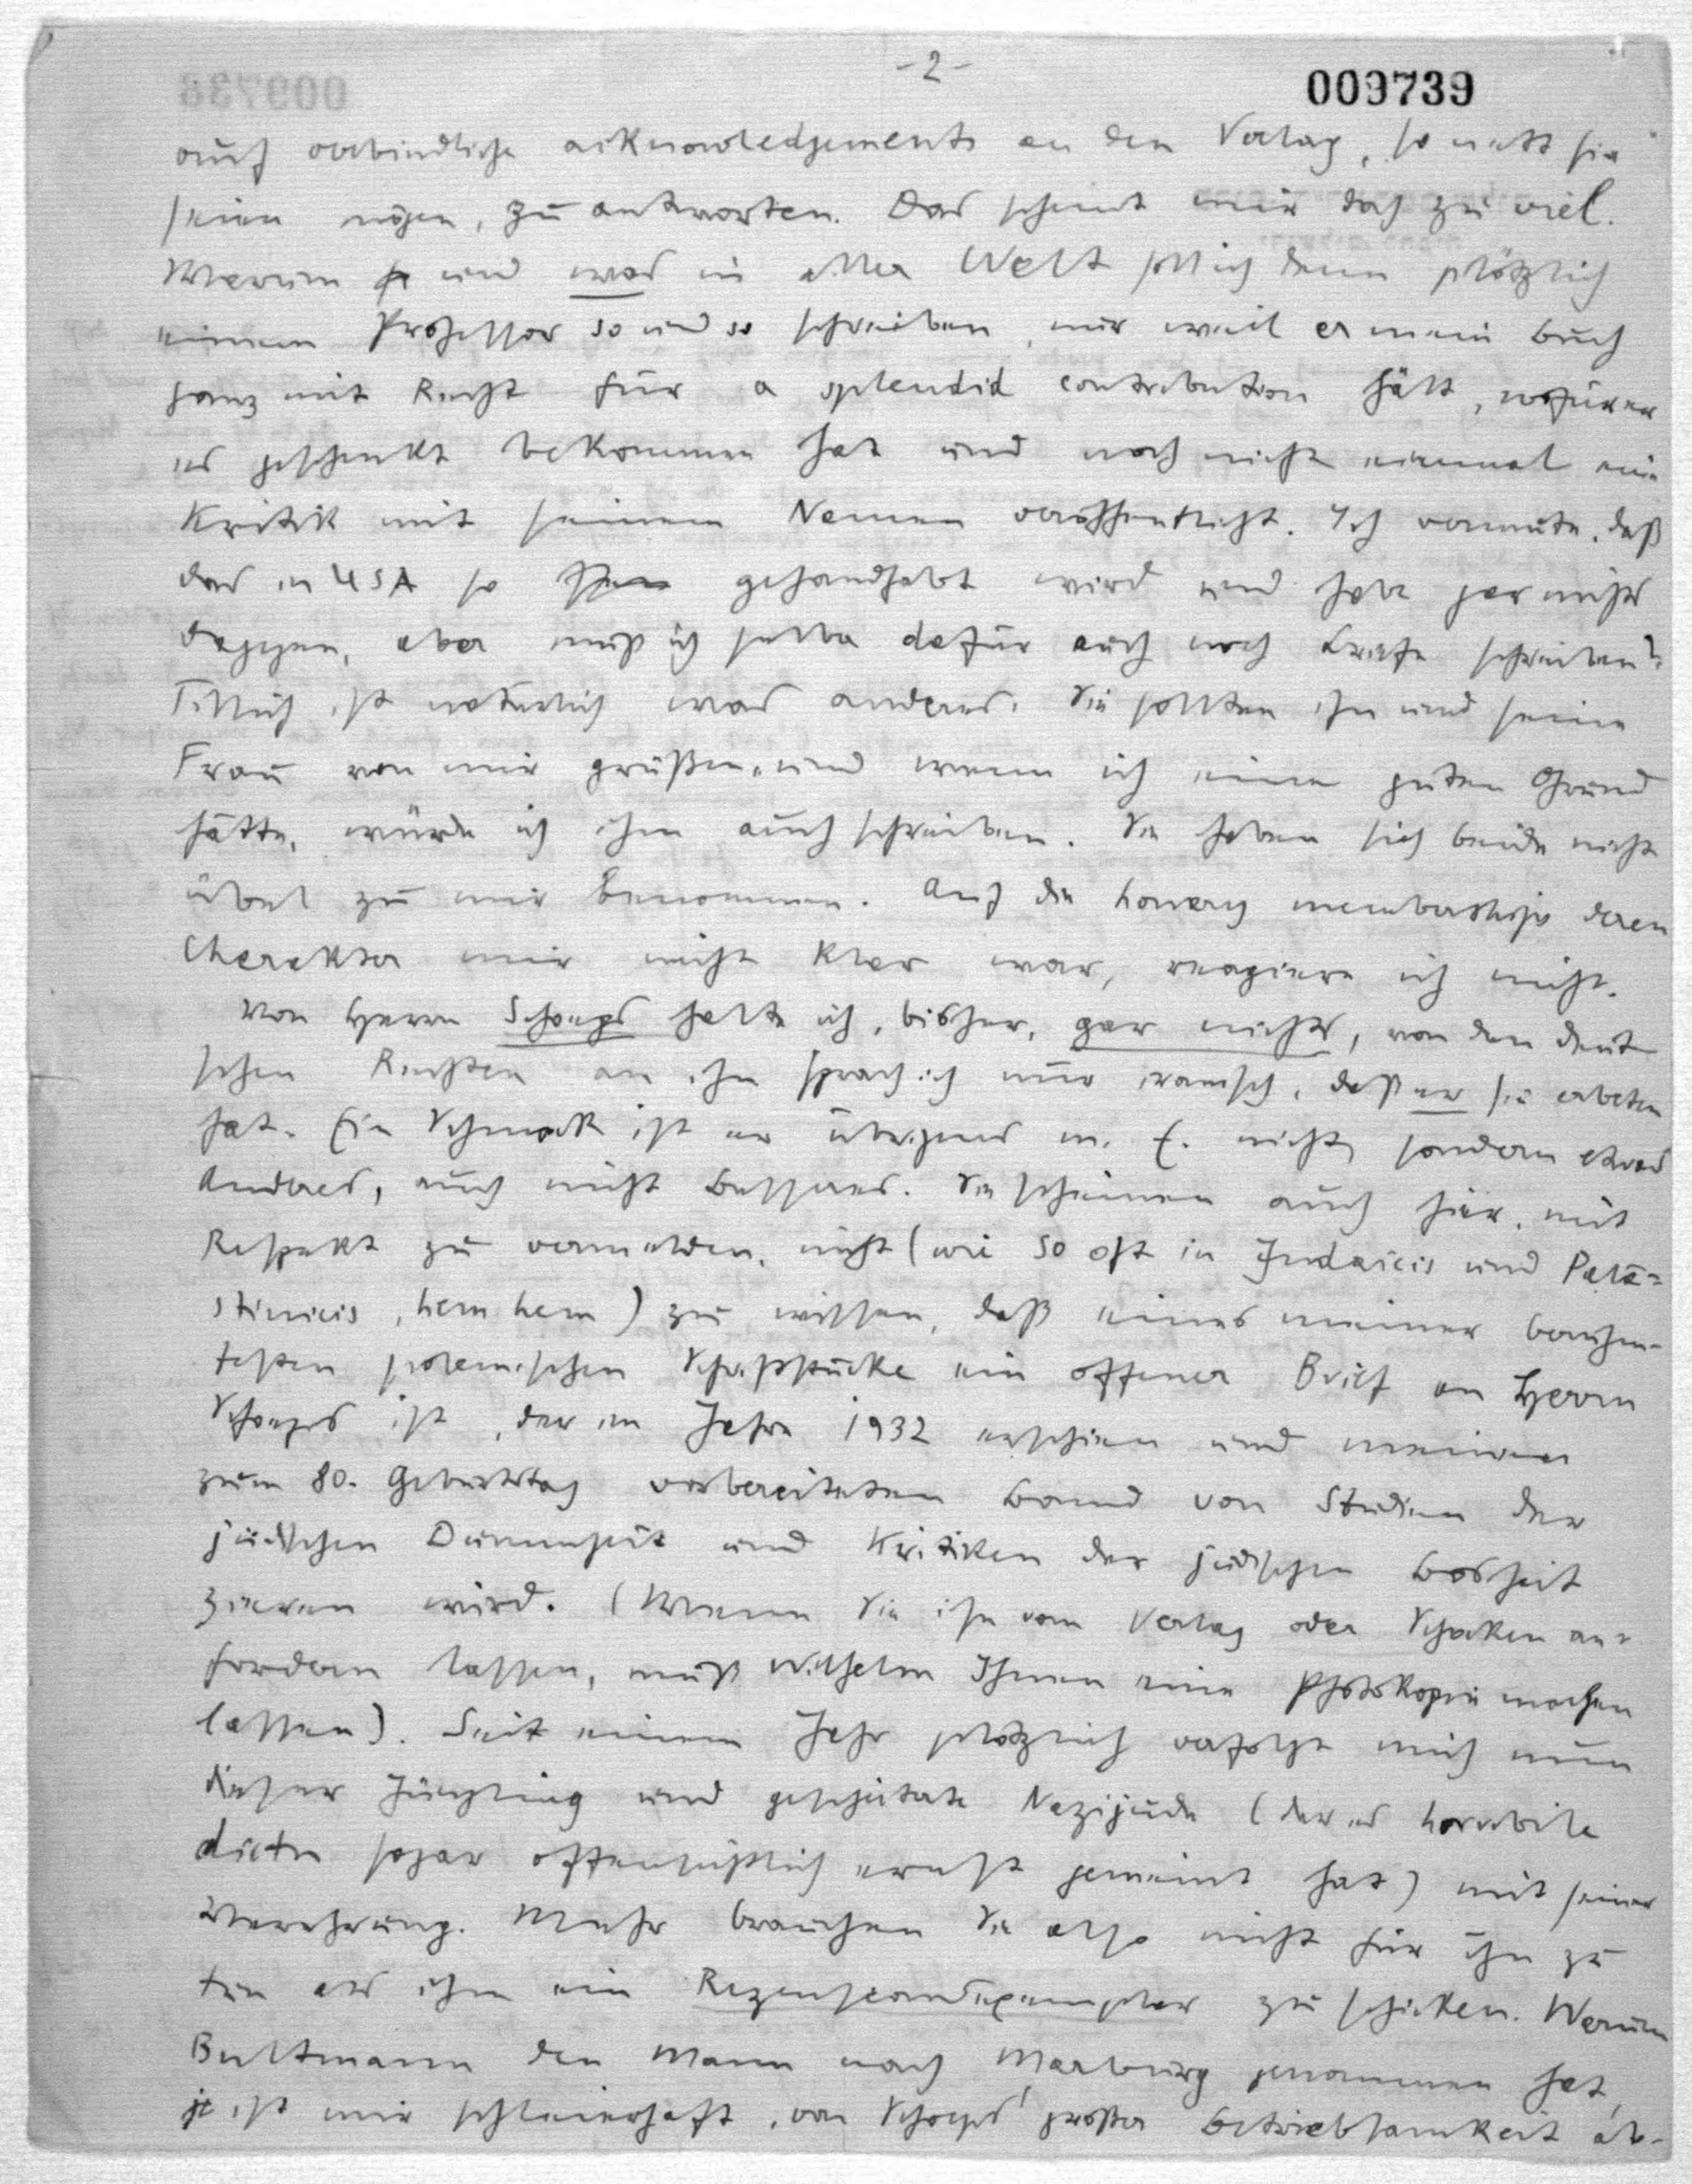 -2-
009739
auch verbindliche acknowledgements an den Verlag, so nett sie
seien mögen, zu antworten. Das scheint mir doch zu viel.
Warum und was in aller Welt soll ich denn plötzlich
einem Professor so und so schreiben, nur weil er mein Buch
ganz mit Recht für a splendid contribution hält, wofür er
es geschenkt bekommen hat und noch nicht einmal eine
Kritik mit seinem Namen veröffentlicht. Ich vermute, daß
das in USA so gehandhabt wird und habe gar nichts
dagegen, aber muß ich selber dafür auch noch Briefe schreiben?
Tillich ist natürlich was anderes. Sie sollten ihn und seine
Frau von mir grüßen, und wenn ich einen guten Grund
hätte, würde ich ihm auch schreiben. Sie haben sich beide nicht
übel zu mir benommen. Auf die honorary membership deren
Charakter mir nicht klar war, reagiere ich nicht.
Von Herrn Schoeps halte ich, bisher, gar nichts, von den deut-
schen Rechten an ihn sprach ich nur ironisch, daß er sie erbeten
hat. Ein Schmock ist er übrigens m. E. nicht, sondern etwas
Anderes, auch nicht Besseres. Sie scheinen auch hier, mit
Respekt zu vermelden, nicht (wie so oft in Judaicis und Palä-
stinicis, hem hem) zu wissen, daß eines meiner berühm-
testen polemischen Schriftstücke ein offener Brief an Herrn
Schoeps ist, der im Jahre 1932 erschien und meinen
zum 80. Geburtstag vorbereiteten Band von Studien der
jüdischen Dummheit und Kritiken der jüdischen Bosheit
zieren wird. (Wenn Sie ihn vom Verlag oder Schocken an-
fordern lassen, muß Wilhelm Ihnen eine Photokopie machen
lassen). Seit einem Jahr plötzlich verfolgt mich nun
dieser Jüngling und gescheiterte Nazijude (der es horribile
dictu sogar offensichtlich ernst gemeint hat) mit seiner
Verehrung. Mehr brauchen Sie also nicht für ihn zu
tun als ihm ein Rezensionsexemplar zu schicken. Warum
Bultmann den Mann nach Marburg genommen hat,
ist mir schleierhaft, von Schoeps' großer Betriebsamkeit ab-